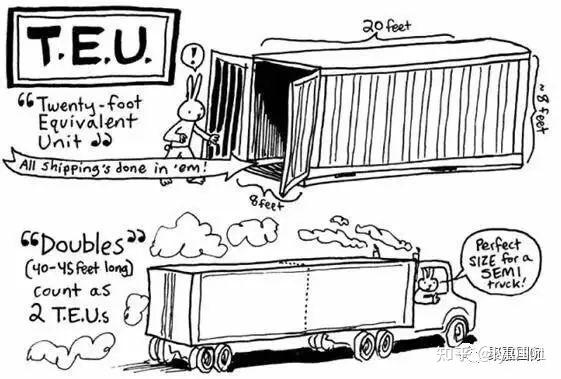 T.E.U.
"Twenty-foot
Equivalent
Unit"
!
All shipping's done in 'em!
20 feet
~8 feet
8 feet
"Doubles"
(40-45 feet long)
count as
2 T.E.U.s
Perfect
SIZE for a
SEMI
truck!
知乎